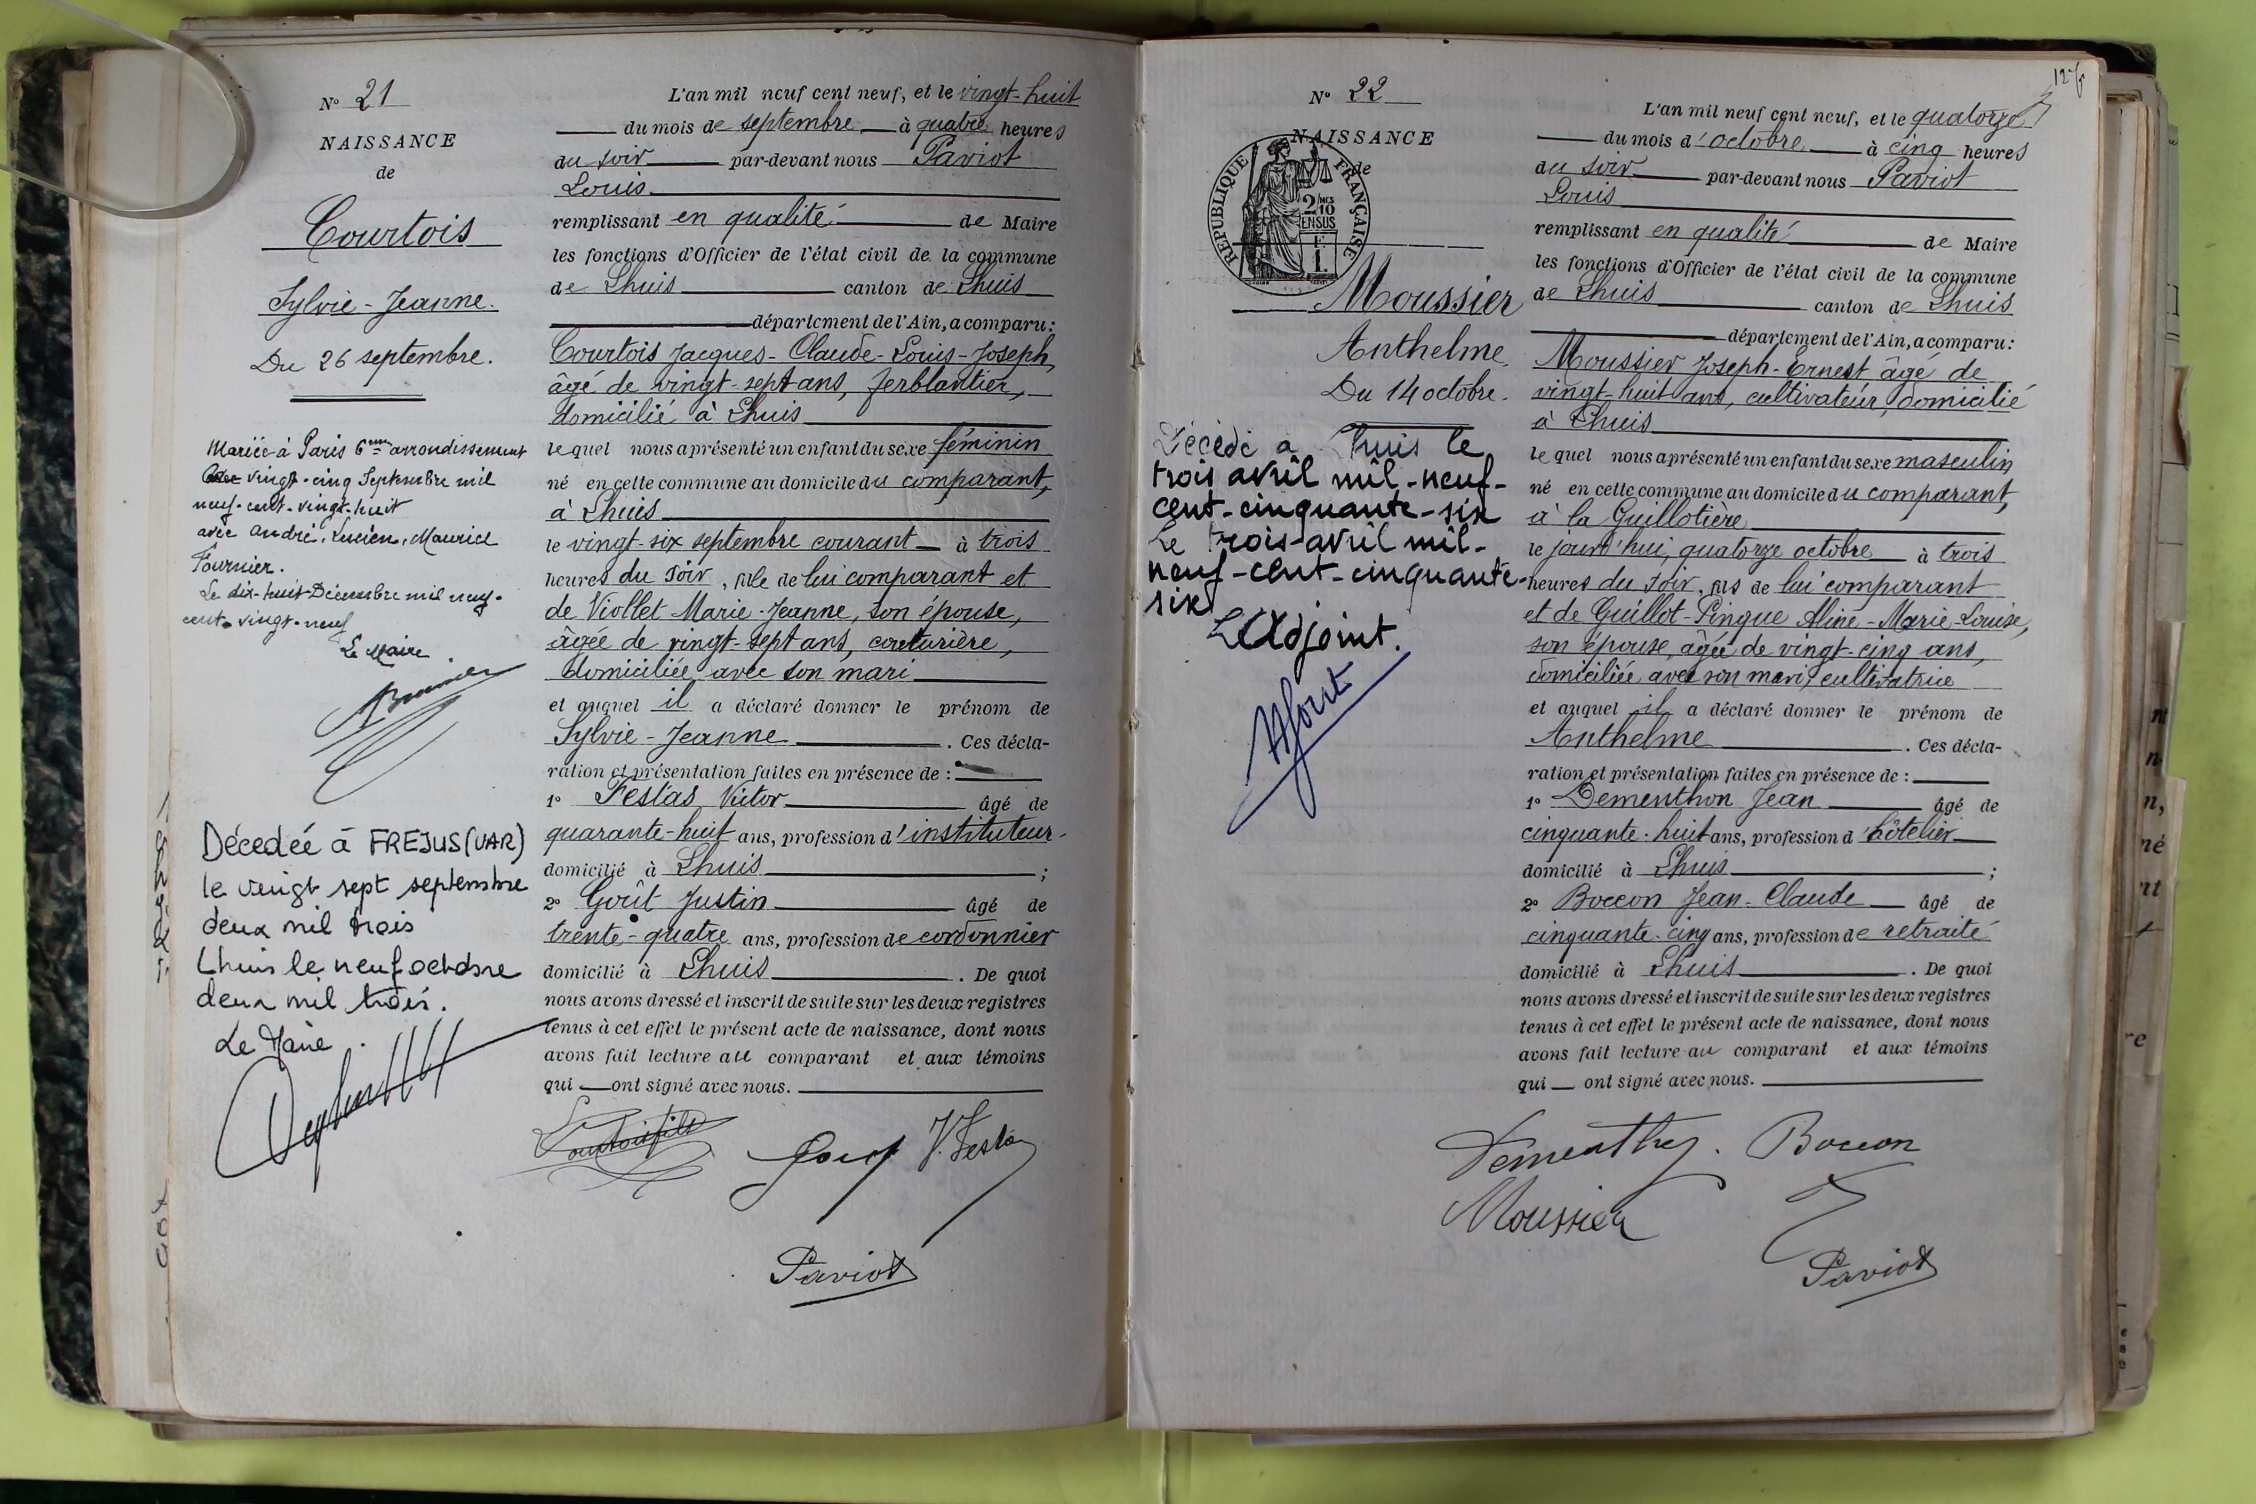 N° 21
NAISSANCE
de
Courtois
Sylvie-Jeanne.
Du 26 septembre.
Mariée à Paris 6ème arrondissement
vingt-cinq Septembre mil
neuf-cent-vingt-huit
avec André, Lucien, Maurice
Fournier.
Le dix-huit Décembre mil neuf-
cent-vingt-neuf
Le Maire
Décédée à FREJUS (VAR)
le vingt sept septembre
deux mil trois
Lhuis le neuf octobre
deux mil trois.
Le Maire
L'an mil neuf cent neuf, et le vingt-huit
du mois de septembre à quatre heures
du soir par-devant nous Paviot
Louis
remplissant en qualité de Maire
les fonctions d'Officier de l'état civil de la commune
de Lhuis canton de Lhuis
département de l'Ain, a comparu:
Courtois Jacques-Claude-Louis-Joseph,
âgé de vingt-sept ans, ferblantier,
domicilié à Lhuis
lequel nous a présenté un enfant du sexe féminin
né en cette commune au domicile du comparant,
à Lhuis
le vingt-six septembre courant à trois
heures du soir, fille de lui comparant et
de Viollet Marie-Jeanne, son épouse,
âgée de vingt-sept ans, couturière,
domiciliée avec son mari
et auquel il a déclaré donner le prénom de
Sylvie-Jeanne. Ces décla-
ration et présentation faites en présence de :
1° Festas Victor âgé de
quarante-huit ans, profession d'instituteur
domicilié à Lhuis ;
2° Goût Justin âgé de
trente-quatre ans, profession de cordonnier
domicilié à Lhuis. De quoi
nous avons dressé et inscrit de suite sur les deux registres
tenus à cet effet le présent acte de naissance, dont nous
avons fait lecture au comparant et aux témoins
qui ont signé avec nous.
Courtois fils
V. Festas
Paviot
N° 22
NAISSANCE
de
RÉPUBLIQUE FRANÇAISE
2/10
EN SUS
Moussier
Anthelme
Du 14 octobre.
Décédé à Lhuis le
trois avril mil-neuf-
cent-cinquante-six
Le trois-avril mil-
neuf-cent-cinquante-
six
L'Adjoint.
L'an mil neuf cent neuf, et le quatorze
du mois d'octobre à cinq heures
du soir par-devant nous Paviot
Louis
remplissant en qualité de Maire
les fonctions d'Officier de l'état civil de la commune
de Lhuis canton de Lhuis
département de l'Ain, a comparu:
Moussier Joseph-Ernest âgé de
vingt-huit ans, cultivateur, domicilié
à Lhuis
lequel nous a présenté un enfant du sexe masculin
né en cette commune au domicile du comparant,
à la Guillotière
le jourd'hui, quatorze octobre à trois
heures du soir, fils de lui comparant
et de Guillot-Pingue Aline-Marie-Louise,
son épouse, âgée de vingt-cinq ans,
domiciliée avec son mari, cultivatrice
et auquel il a déclaré donner le prénom de
Anthelme. Ces décla-
ration et présentation faites en présence de :
1° Dementhon Jean âgé de
cinquante-huit ans, profession d'hôtelier
domicilié à Lhuis ;
2° Boccon Jean-Claude âgé de
cinquante-cinq ans, profession de retraité
domicilié à Lhuis. De quoi
nous avons dressé et inscrit de suite sur les deux registres
tenus à cet effet le présent acte de naissance, dont nous
avons fait lecture au comparant et aux témoins
qui ont signé avec nous.
Boccon
Moussier
Paviot